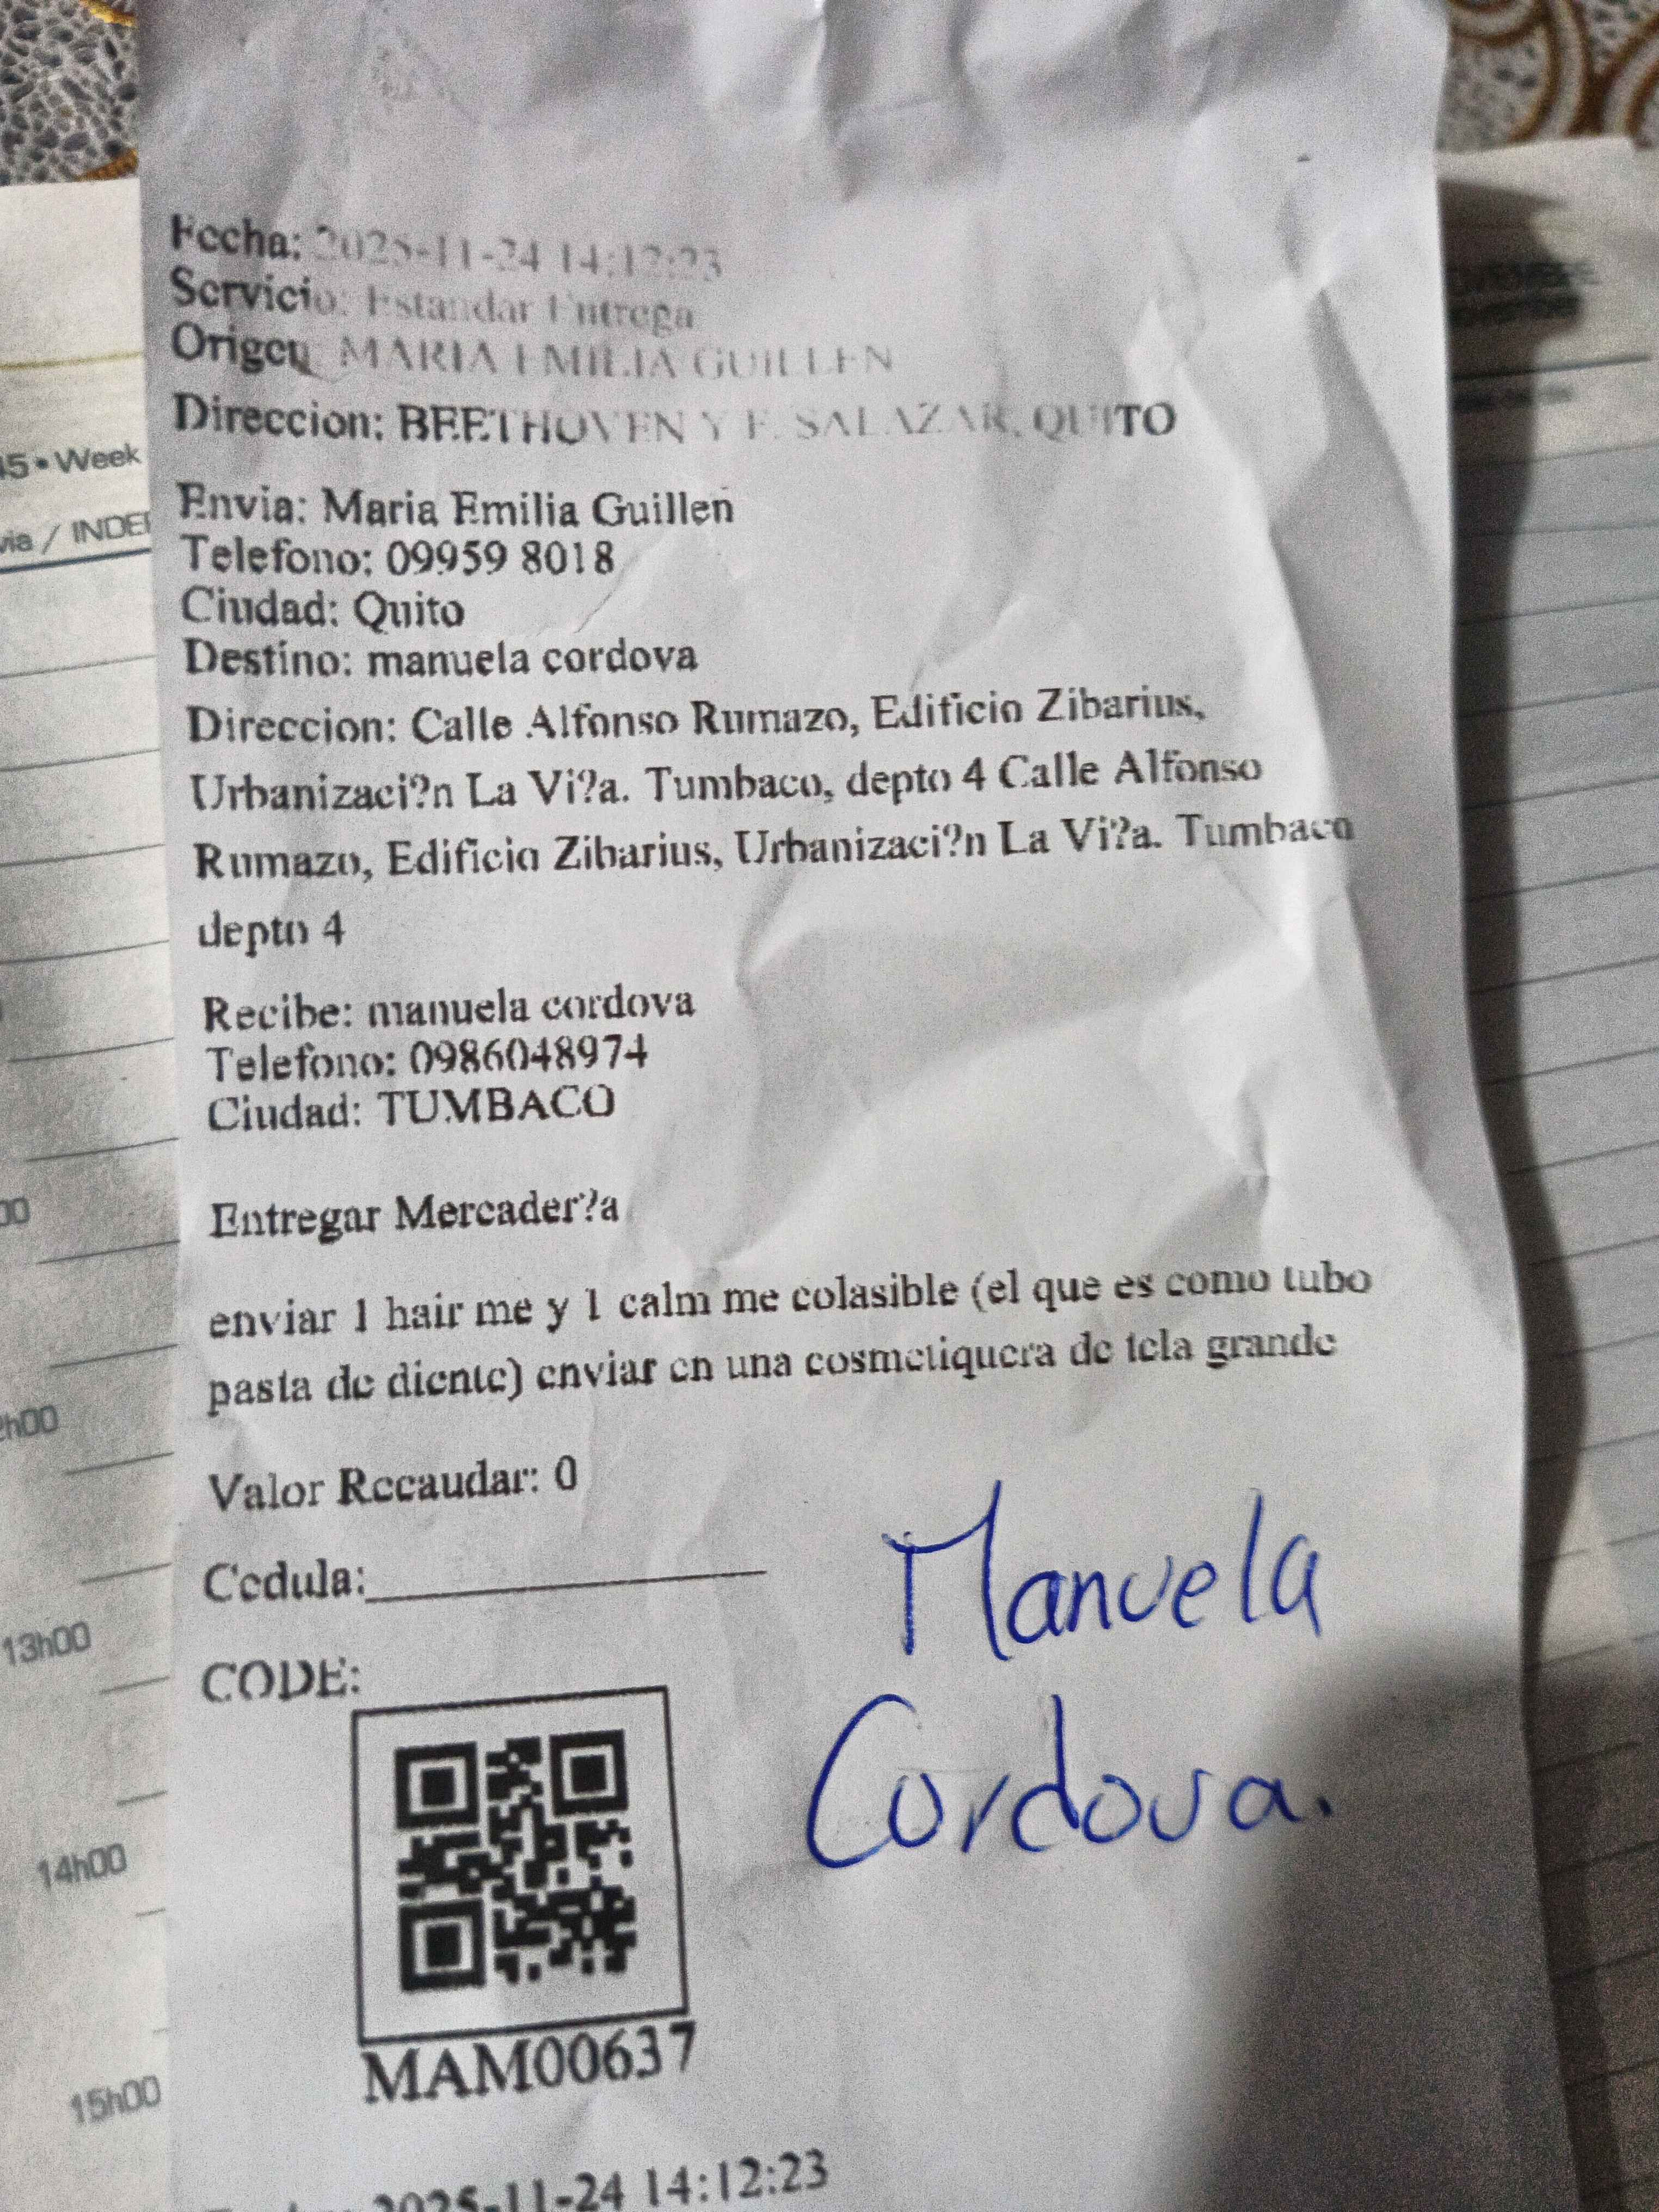 Fecha: 2025-11-24 14:12:23
Servicio: Estandar Entrega
Origen: MARIA EMILIA GUILLEN
Direccion: BEETHOVEN Y F. SALAZAR, QUITO
Envia: Maria Emilia Guillen
Telefono: 09959 8018
Ciudad: Quito
Destino: manuela cordova
Direccion: Calle Alfonso Rumazo, Edificio Zibarius,
Urbanizaci?n La Vi?a. Tumbaco, depto 4 Calle Alfonso
Rumazo, Edificio Zibarius, Urbanizaci?n La Vi?a. Tumbaco
depto 4
Recibe: manuela cordova
Telefono: 0986048974
Ciudad: TUMBACO
Entregar Mercader?a
enviar 1 hair me y 1 calm me colasible (el que es como tubo
pasta de diente) enviar en una cosmetiquera de tela grande
Valor Recaudar: 0
Cedula:
CODE:
MAM00637
Manuela
Cordova.
2025-11-24 14:12:23
45 • Week
via /
13h00
14h00
15h00